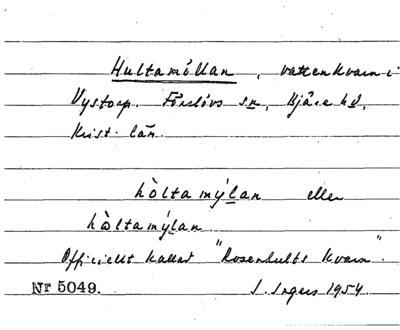 Hultamöllan, vattenkvarn i
Vystorp. Förslövs sn, Bjäre hd,
Krist. län.
hòltamýlan eller
hàltamýlan
Officiellt kallad "Rosenhults kvarn".
Nr 5049. I. Ingers 1954.